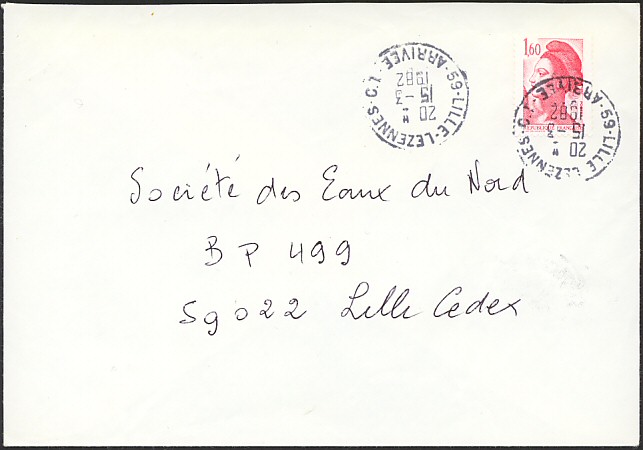 59-LILLE-LEZENNES-C.T.
ARRIVÉE
20 H
15-3
1982
1,60
RÉPUBLIQUE FRANÇAISE
59-LILLE-LEZENNES-C.T.
ARRIVÉE
20 H
15-3
1982
Société des Eaux du Nord
BP 499
59022 Lille Cedex